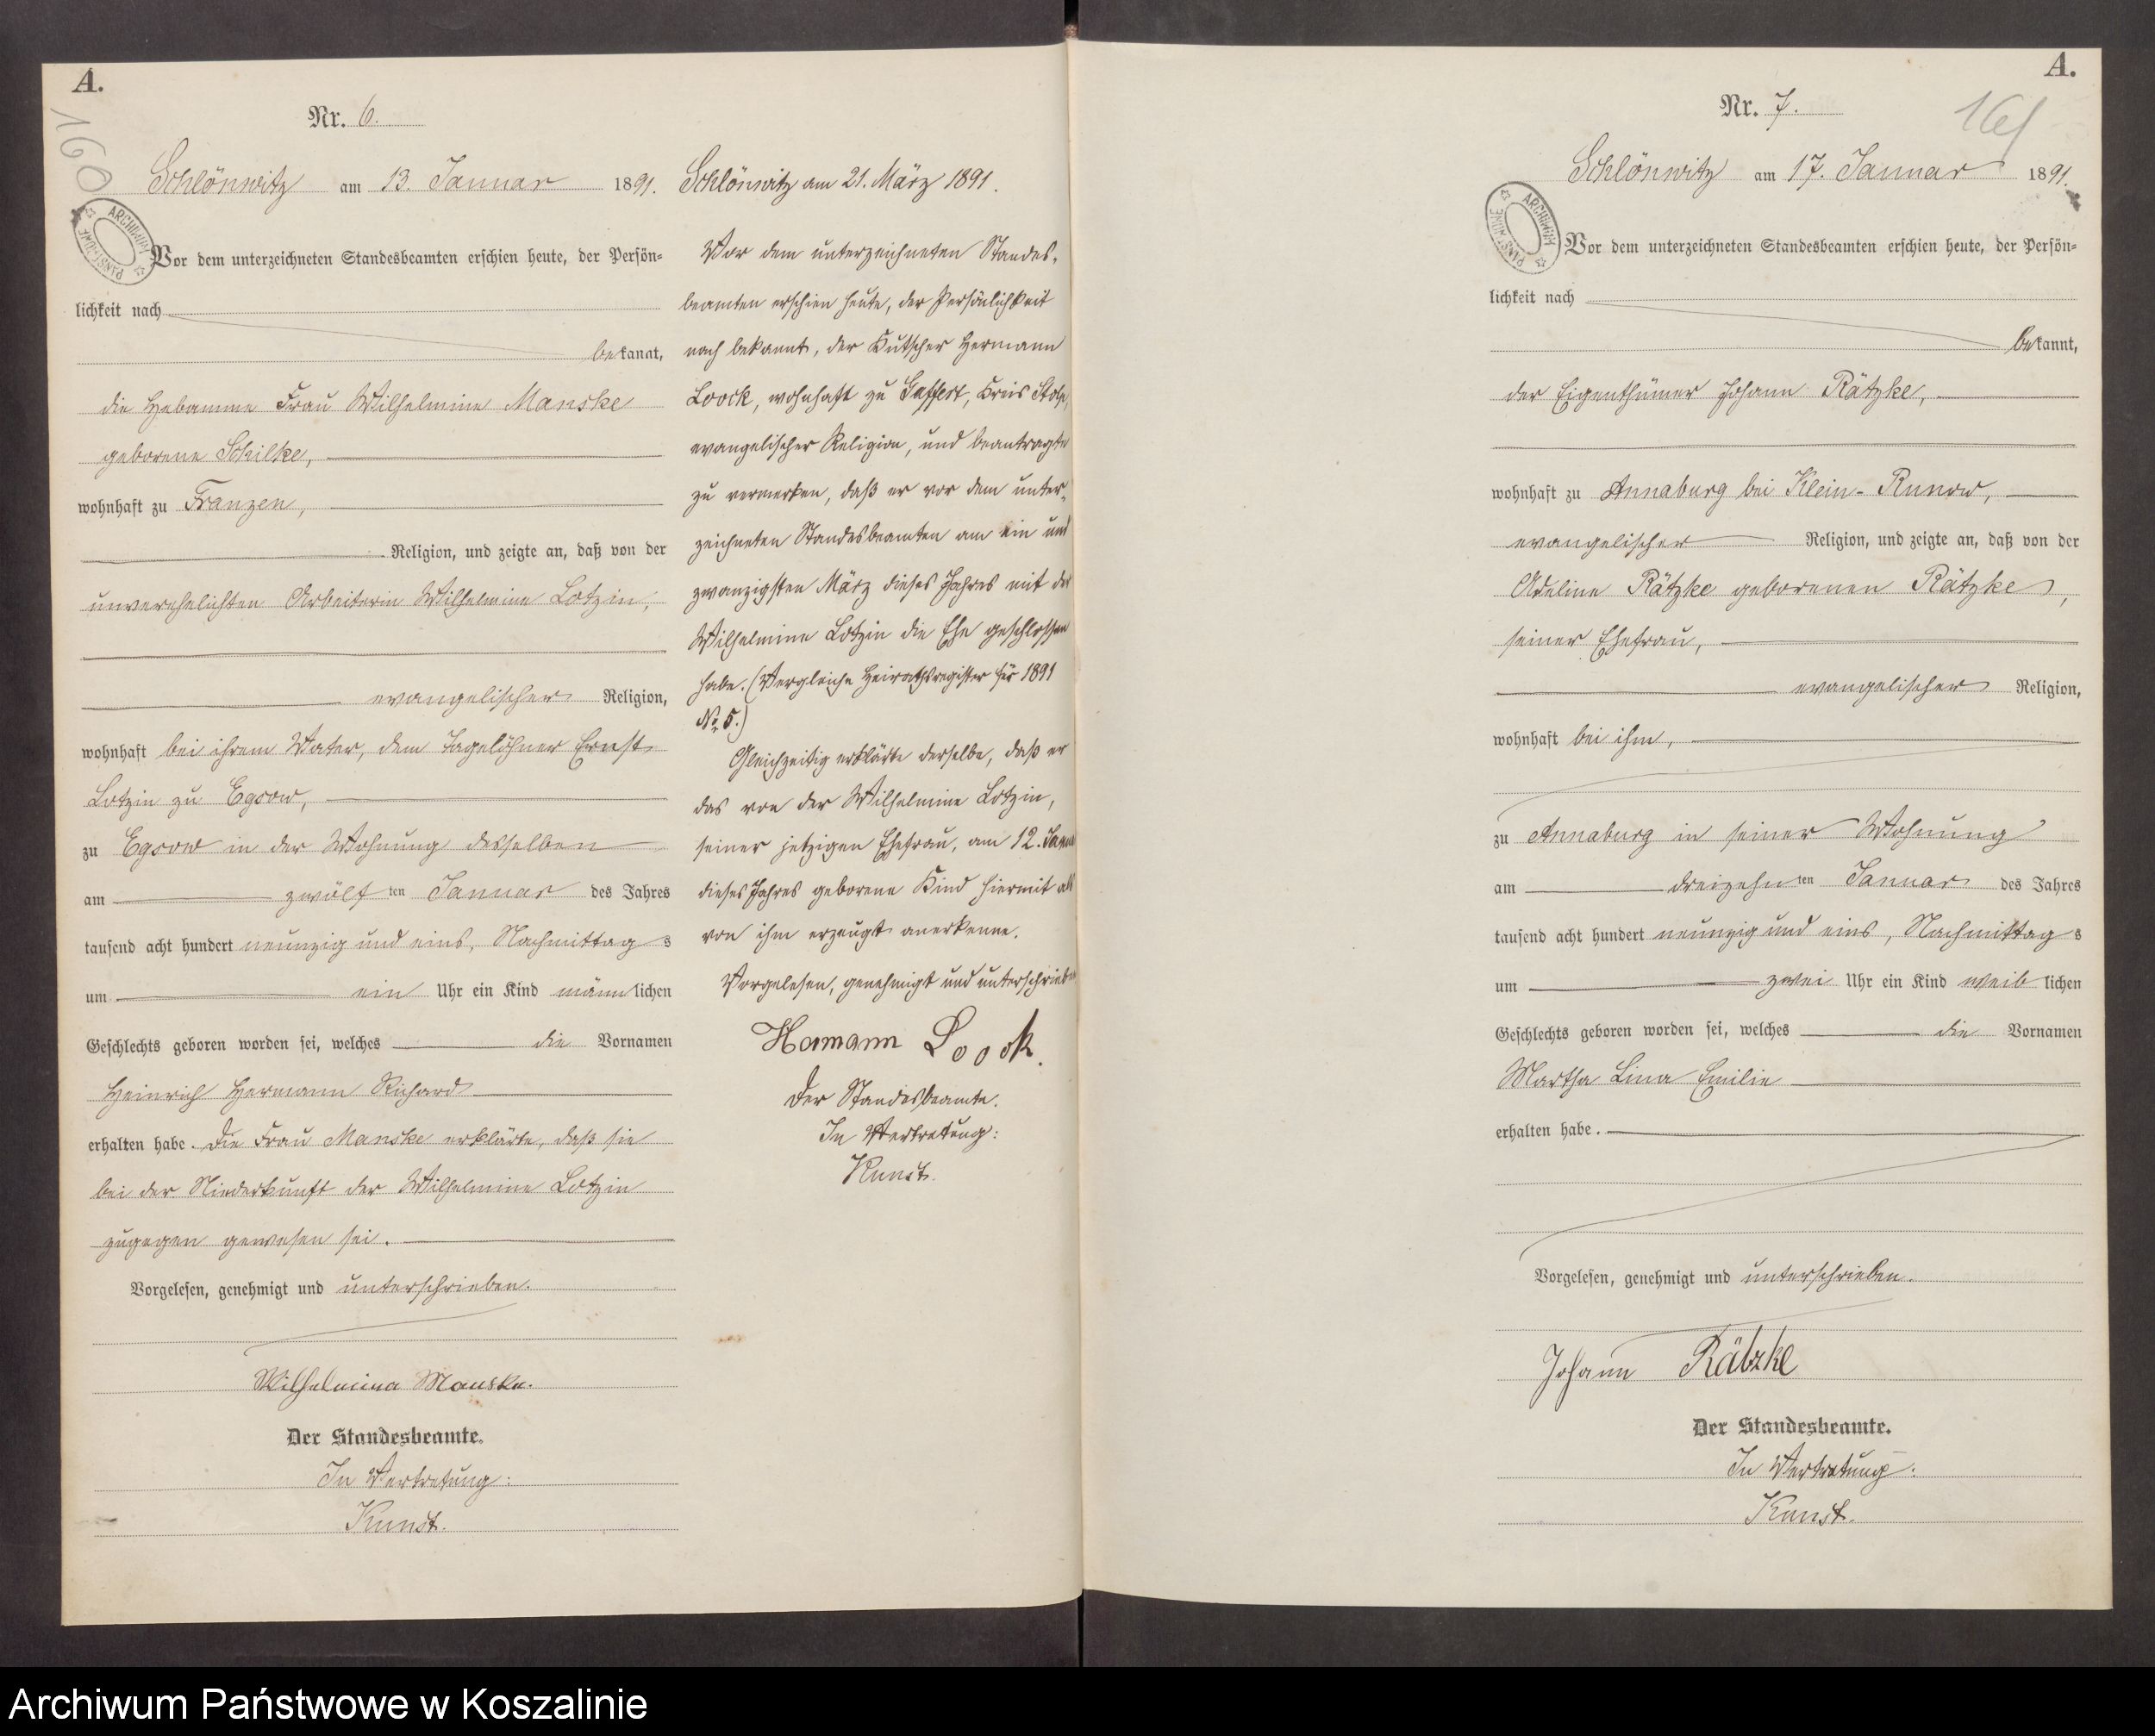 A.
160
Nr. 6.
Schlönwitz am 13. Januar 1891.
Vor dem unterzeichneten Standesbeamten erschien heute, der Persön-
lichkeit nach
bekannt,
die Hebamme Frau Wilhelmine Manske
geborene Schilke,
wohnhaft zu Franzen,
Religion, und zeigte an, daß von der
unverehelichten Arbeiterin Wilhelmine Lotzin,
evangelischer Religion,
wohnhaft bei ihrem Vater, dem Tagelöhner Ernst
Lotzin zu Egsow,
zu Egsow in der Wohnung desselben
am zwölf ten Januar des Jahres
tausend acht hundert neunzig und eins, Nachmittag s
um ein Uhr ein Kind männ lichen
Geschlechts geboren worden sei, welches die Vornamen
Heinrich Hermann Richard
erhalten habe. Die Frau Manske erklärte, daß sie
bei der Niederkunft der Wilhelmine Lotzin
zugegen gewesen sei.
Vorgelesen, genehmigt und unterschrieben.
Wilhelmina Manske.
Der Standesbeamte.
In Vertretung:
Kunst.
Schlönwitz am 21. März 1891.
Vor dem unterzeichneten Standes-
beamten erschien heute, der Persönlichkeit
nach bekannt, der Kutscher Hermann
Loock, wohnhaft zu Gaffert, Kreis Stolp,
evangelischer Religion, und beantragte
zu vermerken, daß er vor dem unter-
zeichneten Standesbeamten am ein und
zwanzigsten März dieses Jahres mit der
Wilhelmine Lotzin die Ehe geschlossen
habe. (Vergleiche Heirathsregister für 1891
No 5.)
Gleichzeitig erklärte derselbe, daß er
das von der Wilhelmine Lotzin,
seiner jetzigen Ehefrau, am 12. Januar
dieses Jahres geborene Kind hiermit als
von ihm erzeugt anerkenne.
Vorgelesen, genehmigt und unterschrieben
Hermann Loock.
Der Standesbeamte.
In Vertretung:
Kunst.
A.
161
Nr. 7.
Schlönwitz am 17. Januar 1891.
Vor dem unterzeichneten Standesbeamten erschien heute, der Persön-
lichkeit nach
bekannt,
der Eigenthümer Johann Rätzke,
wohnhaft zu Annaburg bei Klein-Runow,
evangelischer Religion, und zeigte an, daß von der
Adeline Rätzke geborenen Rätzke,
seiner Ehefrau,
evangelischer Religion,
wohnhaft bei ihm,
zu Annaburg in seiner Wohnung
am dreizehn ten Januar des Jahres
tausend acht hundert neunzig und eins, Nachmittag s
um zwei Uhr ein Kind weib lichen
Geschlechts geboren worden sei, welches die Vornamen
Martha Lina Emilie
erhalten habe.
Vorgelesen, genehmigt und unterschrieben.
Johann Rätzke
Der Standesbeamte.
In Vertretung:
Kunst.
Archiwum Państwowe w Koszalinie